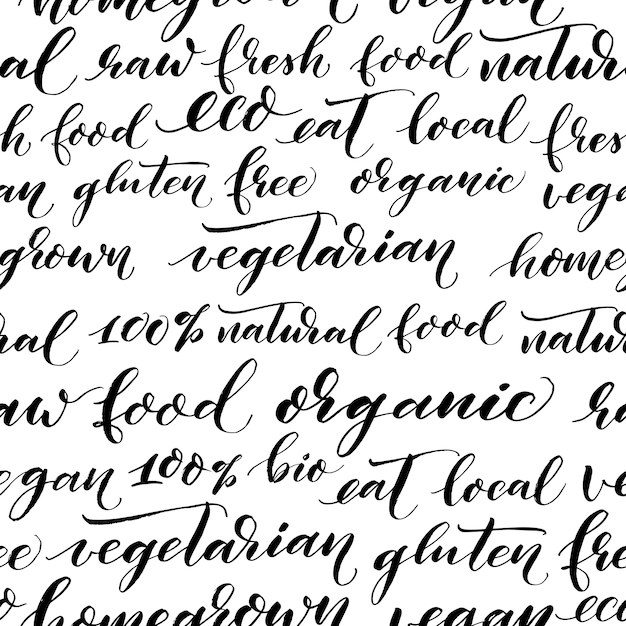 homegrown vegan
al raw fresh food natura
h food eco eat local fres
an gluten free organic vega
grown vegetarian homeg
ral 100% natural food natur
aw food organic ra
egan 100% bio eat local ve
ee vegetarian gluten fre
o homegrown vegan eco